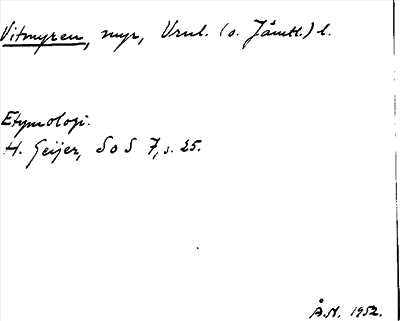 Vitmyren, myr, Urul. (o. Jämtl.) l.
Etymologi.
H. Geijer, SoS 7, s. 25.
Å.N. 1952.